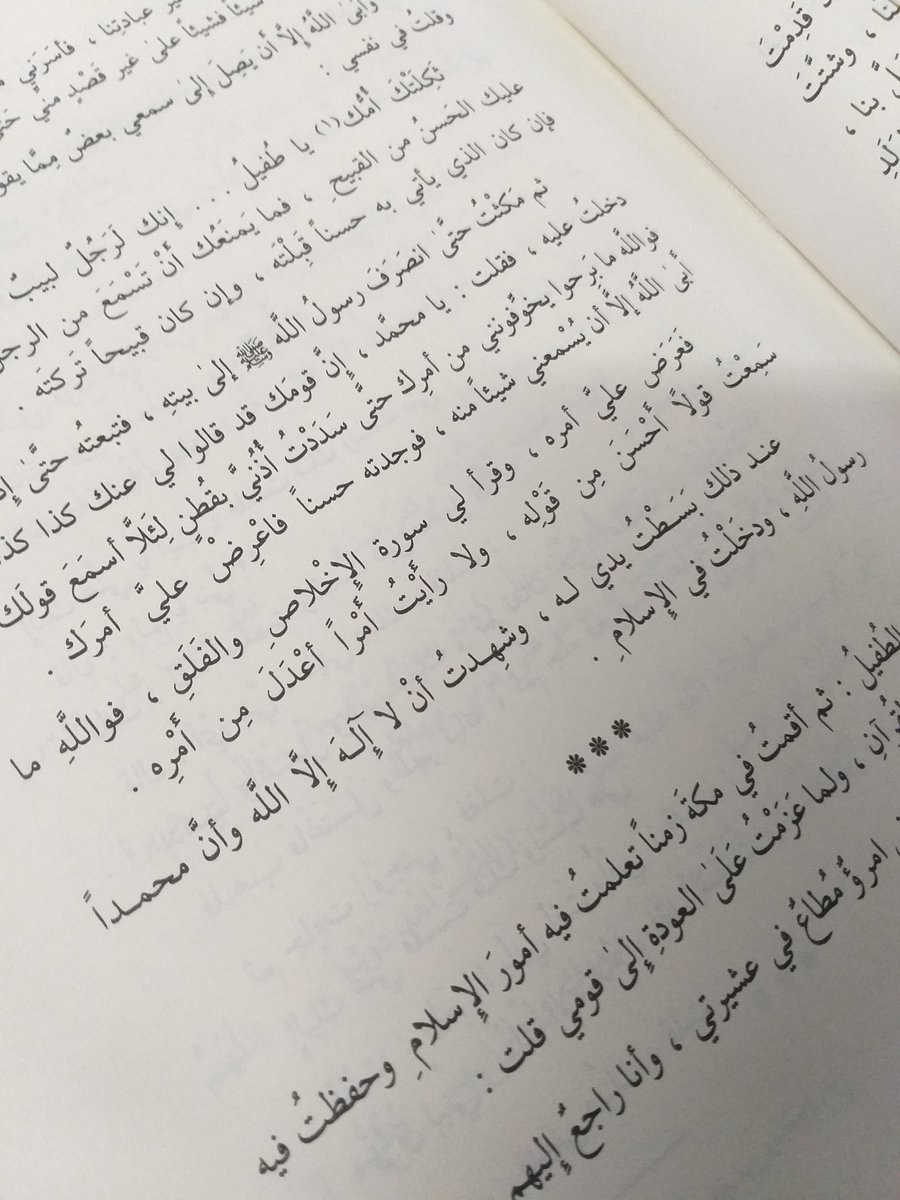 قَدِمْتَ
لنا ، وشتَّتَ
بنا ،
غير عبادتِنا ، فأسَرَني
شيئاً فشيئاً على غير قَصْدٍ مني حَتَّى
وأبى اللَّهُ إلَّا أن يَصِلَ إلى سمعي بعضٌ مِمَّا يقول
وقلتُ في نفسي :
ثَكِلَتْكَ أُمُّك(١) يا طُفيلُ ... إنك لَرَجُلٌ لبيبٌ
عليك الحَسنُ من القبيح ، فما يَمنَعُك أنْ تَسْمَعَ من الرجل
فإن كان الذي يأتي به حسناً قَبِلْتَه ، وإن كان قبيحاً تَركتَه .
ثم مَكثْتُ حتَّى انصَرَفَ رسولُ اللَّه ﷺ إلى بيتِهِ ، فتبعتُه حتَّى إذا
دخلتُ عليه ، فقلت : يا محمَّد ، إنَّ قومَك قد قالوا لي عنك كذا كذا
فواللَّه ما بَرحوا يخوِّفونني من أمرِك حتَّى سَدَدْتُ أذُنيَّ بقُطنٍ لِئَلَّا أسمَعَ قولَك
أبى اللَّهُ إلَّا أن يُسْمِعني شيئاً منه ، فوجدته حسناً فاعْرِضْ عليَّ أمرَك .
فَعَرَض عليَّ أمره ، وقرأ لي سورة الإخْلاصِ والفَلَقِ ، فواللَّهِ ما
سَمِعْتُ قولًا أحْسَنَ مِن قَوْلِه ، ولا رأيْتُ أمْراً أعْدَلَ مِن أمْرِه .
عند ذلك بَسَطْتُ يدي له ، وشهِدتُ أنْ لا آلـٰهَ إلَّا اللَّه وأنَّ محمداً
رسولُ اللَّهِ ، ودخَلْتُ في الإسلامِ .
***
الطُفيلُ : ثم أقمتُ في مكةَ زمناً تعلمتُ فيه أمورَ الإسلامِ وحفظتُ فيه
ولما عَزَمْتُ عَلَى العودةِ إلى قومي قلت :
امرؤٌ مُطاعٌ في عشيرتي ، وأنا راجعٌ إليهم